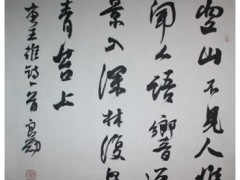 空山不見人
聞人語響返
景入深林復
青苔上
唐王維詩一首